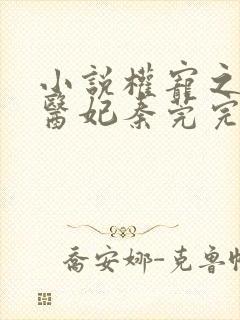 小說權寵之
醫妃秦芫完
喬安娜-克魯